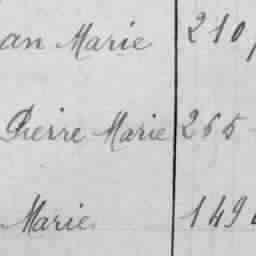 an Marie 210
Pierre Marie 265
Marie 149